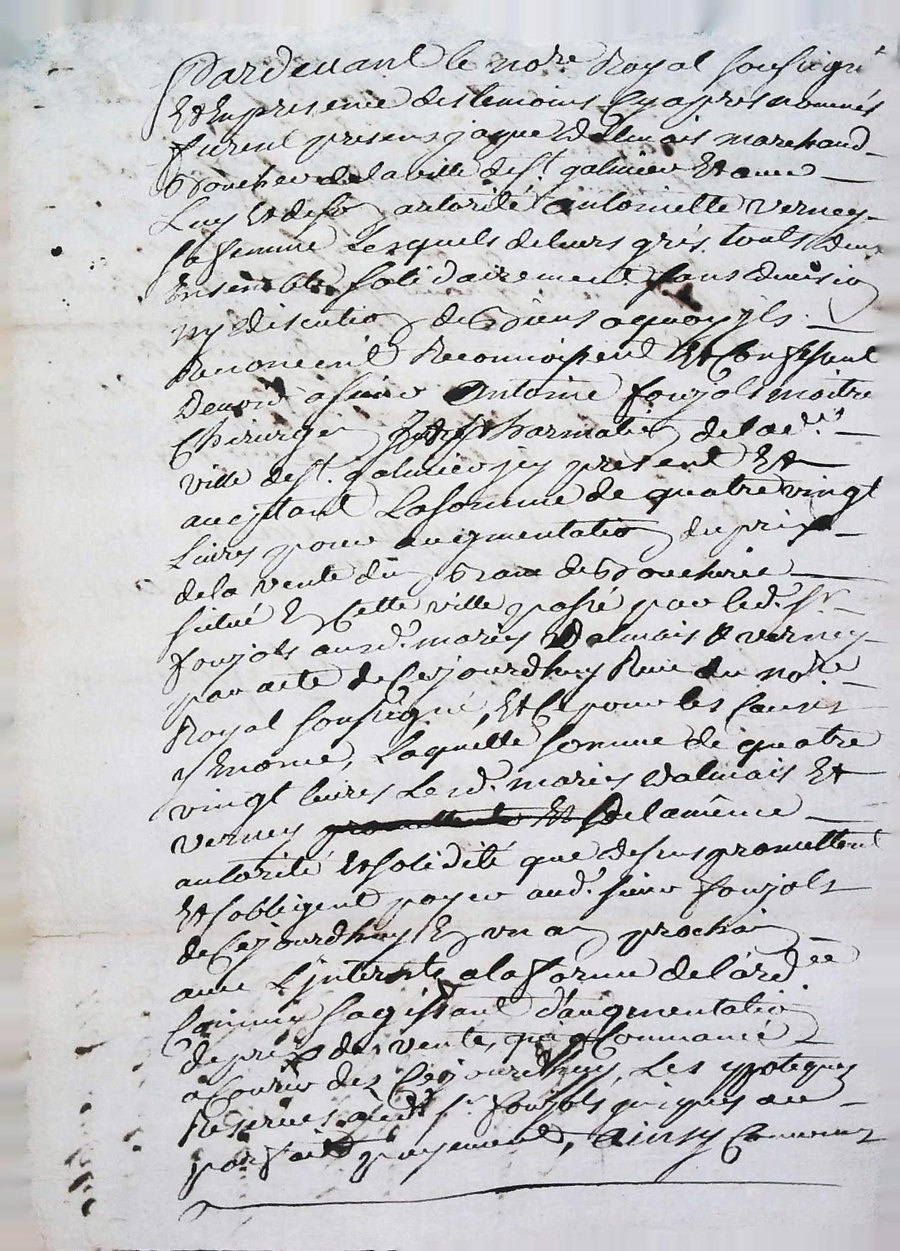 Pardevant le nore Royal soussigné
Et En presence des temoins Cy apres nommés
furent presens jaque Dalmais marchand
Boucher de la ville de st. galmier Et avec
Luy Et de son autorité antoinette verney
sa femme Lesquels de leurs grés touts deux
Ensemble solidairement sans division
ny discution de Biens aquoy jls
Renoncent Reconnoissent Et Confessent
Devoir a sieur Antoine foujols maitre
Chirurgien pharmatien de lad.
ville de st. galmier jcy present Et
acceptant La somme de quatre vingt
Livres pour augmentation du prix
de la vente d'un Banc de Boucherie
situé En Cette ville passé par led. sr.
foujols auxd. mariés Dalmais & verney
par acte de Cejourdhuy Reçu du nore
Royal soussigné, Et Ce pour les Causes
y Enoncé, Laquelle somme de quatre
vingt livres Lesd. mariés Dalmais Et
verney promettent Et de la même
autorité Et solidité que dessus promettent
Et sobligent payer aud. sieur foujols
de Cejourdhuy En un an prochain
avec L'jnterets a la forme de l'ordée
Comme sagissant d'augmentation
de prix des ventes qui Commancé
a Courir dez Cejourdhuy, Les ypoteques
Reservés aud. sr. foujols jusques au
parfait payement, ainsy Convenu